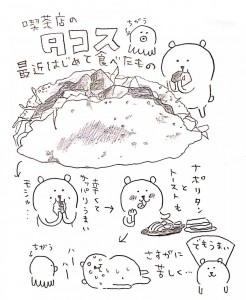 喫茶店の
タコス
ちがう
最近はじめて食べたもの
モシャ…
辛くて
サッパリうまい
ナポリタン
と
トーストも
ちがう
ハー
ハー
さすがに
苦しく…
でもうまい